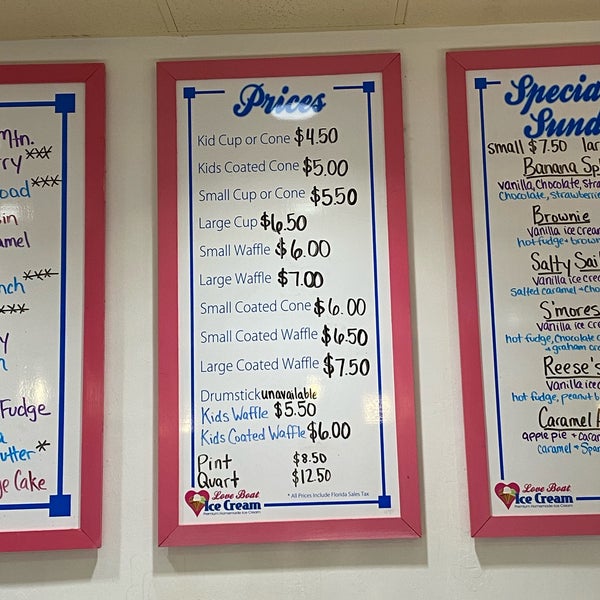 Mtn.
rry ***
oad ***
sin
amel
nch ***
***
y
n
Fudge
a
utter *
ge Cake
Prices
Kid Cup or Cone $4.50
Kids Coated Cone $5.00
Small Cup or Cone $5.50
Large Cup $6.50
Small Waffle $6.00
Large Waffle $7.00
Small Coated Cone $6.00
Small Coated Waffle $6.50
Large Coated Waffle $7.50
Drumstick unavailable
Kids Waffle $5.50
Kids Coated Waffle $6.00
Pint $8.50
Quart $12.50
* All Prices Include Florida Sales Tax
Love Boat
Ice Cream
Premium Homemade Ice Cream
Specia
Sund
small $7.50 lar
Banana Spl
vanilla, chocolate, stra
chocolate, strawberrie
Brownie
vanilla ice cream
hot fudge + brown
Salty Sail
vanilla ice crea
salted caramel + cho
S'mores
vanilla ice cr
hot fudge, chocolate c
+ graham cra
Reese's
vanilla icec
hot fudge, peanut b
Caramel A
apple pie + caram
caramel + Span
Love Boat
Ice Cream
Premium Homemade Ice Cream